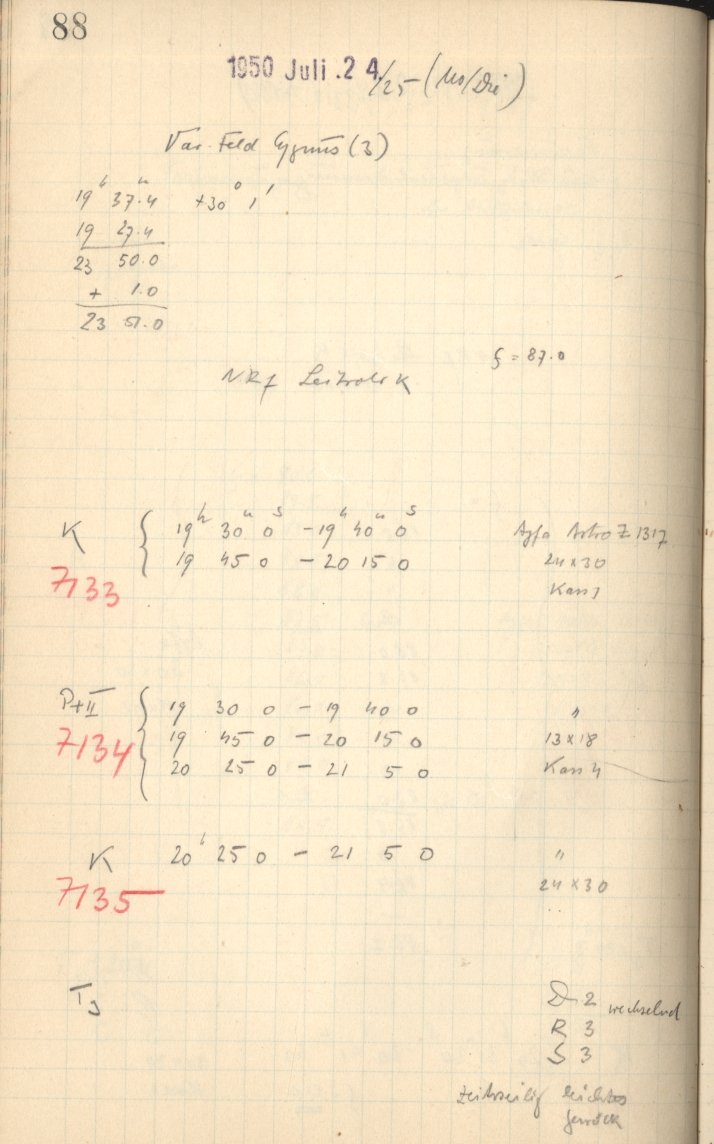 88
1950 Juli. 24/25 (Mo/Die)
Var. Feld Cygnus (3)
19h 37m.4 +30° 1'
19 27.4
23 50.0
+ 1.0
23 51.0
ξ = 87.0
NRf Leitrohr K
K { 19h 30m 0s - 19h 40m 0s Agfa Astro Z 1317
19 45 0 - 20 15 0 24 x 30
7133 Kass 1
P+II { 19 30 0 - 19 40 0 "
7134 19 45 0 - 20 15 0 13 x 18
20 25 0 - 21 5 0 Kass 4
K 20h 25 0 - 21 5 0 "
7135 24 x 30
D 2 wechselnd
R 3
S 3
zeitweilig leichtes
Gewölk